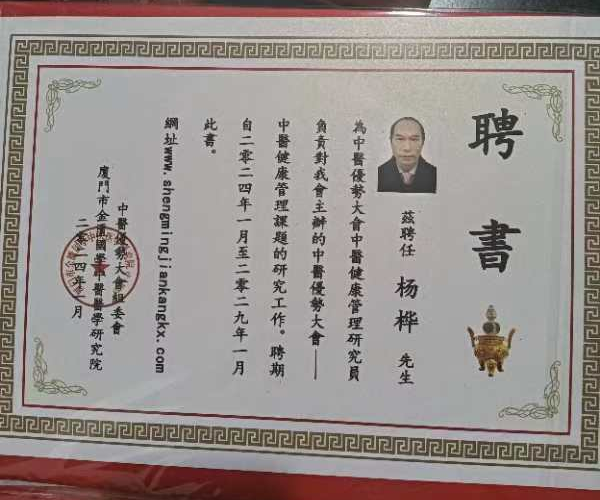 聘書
茲聘任 杨桦 先生
為中醫優勢大會中醫健康管理研究員
負責對我會主辦的中醫優勢大會——
中醫健康管理課題的研究工作。聘期
自二零二四年一月至二零二九年一月
此書。
網址www.shengmingjiankangkx.com
中醫優勢大會組委會
廈門市金濱國學中醫醫學研究院
二零二四年一月